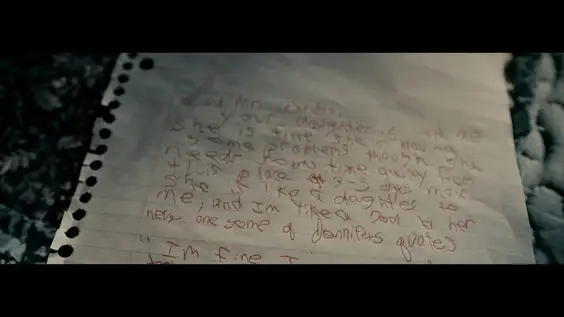 Mr.
your daughter is with me
she is fine she's having
some problems though she
needs some time away from
this place 3-5 days max
she is like a daughter to
me, and Im like a to her
here are some of Jennifers quotes
" Im fine I